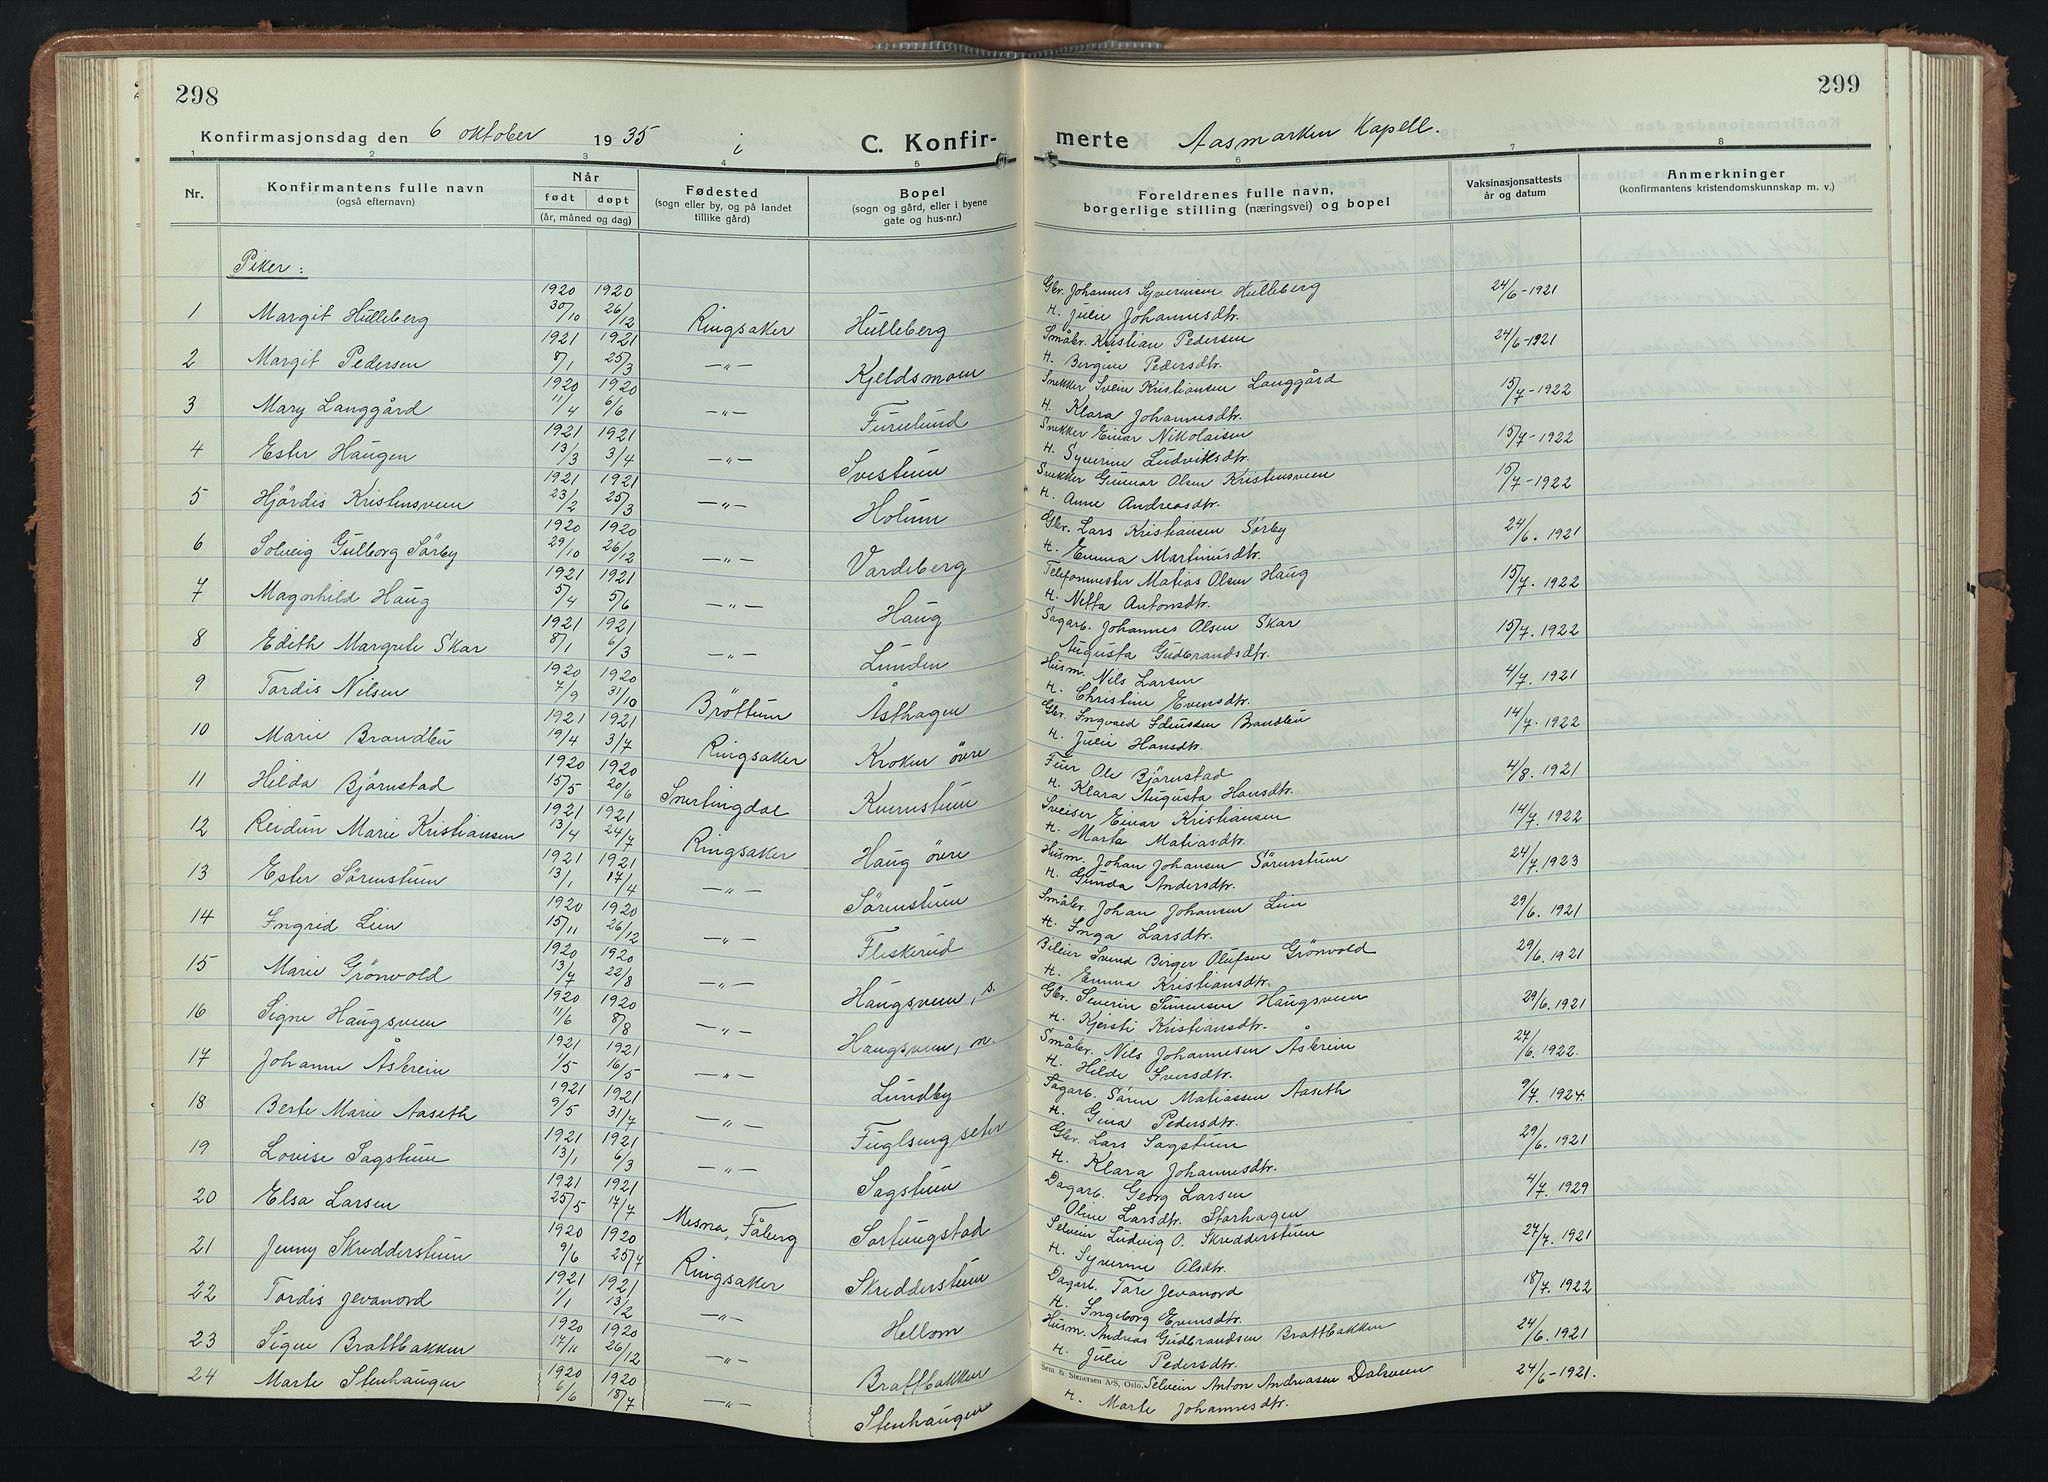 298
299
Konfirmasjonsdag den 6 oktober 1935 i C. Konfirmerte Aasmarken Kapell.
1 2 3 4 5 6 7 8
Nr. Konfirmantens fulle navn (også efternavn) Når født døpt (år, måned og dag) Fødested (sogn eller by, og på landet tillike gård) Bopel (sogn og gård, eller i byene gate og hus-nr.) Foreldrenes fulle navn, borgerlige stilling (næringsvei) og bopel Vaksinasjonsattests år og datum Anmerkninger (konfirmantens kristendomskunnskap m. v.)
Piker:
1 Margit Hulleberg 1920 30/10 1920 26/12 Ringsaker Hulleberg Gbr. Johannes Syverinsen Hulleberg 24/6-1921
H. Julie Johannesdtr.
2 Margit Pedersen 1921 8/1 1921 25/3 -"- Kjeldsmoen Småbr. Kristian Pedersen 24/6-1921
H. Bergine Pedersdtr.
3 Mary Langgård 1920 11/4 1920 6/6 -"- Furulund Snekker Svein Kristiansen Langgård 15/7-1922
H. Klara Johannesdtr.
4 Ester Haugen 1921 13/3 1921 3/4 -"- Svestum Snekker Einar Nikolaisen 15/7-1922
H. Syverine Ludviksdtr.
5 Hjördis Kristensveen 1921 23/2 1921 25/3 -"- Holum Snekker Gunnar Olsen Kristensveen 15/7-1922
H. Anne Andreasdtr.
6 Solveig Gulborg Sörby 1920 29/10 1920 26/12 -"- Vardeberg Gbr. Lars Kristiansen Sørby 24/6. 1921
H. Emma Martinusdtr.
7 Magnhild Haug 1921 5/4 1921 5/6 -"- Haug Telefonmester Matias Olsen Haug 15/7. 1922
H. Netta Antonsdtr.
8 Edith Margrete Skar 1921 8/1 1921 6/3 -"- Lunden Sagarb. Johannes Olsen Skar 15/7. 1922
Augusta Gudbrandsdtr.
9 Tordis Nilsen 1920 7/9 1920 31/10 Bröttum Åsthagen Husm. Nils Larsen 4/7. 1921
H. Christine Evensdtr.
10 Marie Brandlien 1921 19/4 1921 3/7 Ringsaker Kroken övre Gbr. Ingvald Brandlien 14/7. 1922
H. Julie Hansdtr.
11 Hilda Björnstad 1920 15/5 1920 20/6 Snertingdal Kvernstum Ole Bjørnstad 4/8. 1921
H. Klara Augusta Hansdtr.
12 Reidun Marie Kristiansen 1921 13/4 1921 24/7 Ringsaker Haug övre Sveiser Einar Kristiansen 14/7. 1922
H. Marta Matiasdtr.
13 Ester Sörenstuen 1921 13/1 1921 17/4 -"- Sörenstuen Husm. Johan Johansen Sörenstuen 24/7. 1923
H. Gunda Andersdtr.
14 Ingrid Lien 1920 15/11 1920 26/12 -"- Fleskerud Småbr. Johan Johansen Lien 29/6. 1921
H. Inga Larsdtr.
15 Marie Grönvold 1920 13/7 1920 22/8 -"- Haugsveen, s. Bileier Svend Birger Olufsen Grönvold 29/6. 1921
H. Emma Kristiansdtr.
16 Signe Haugsveen 1920 11/6 1920 8/8 -"- Haugsveen, n. Gbr. Severin Simensen Haugsveen 29/6. 1921
H. Kjersti Kristiansdtr.
17 Johanne Åskrein 1921 1/5 1921 16/5 -"- Lundby Småbr. Nils Johannesen Åskrein 27/6. 1922.
H. Hilde Iversdtr.
18 Berte Marie Aaseth 1921 9/5 1921 31/7 -"- Fuglsengseter Sagarb. Sören Matiassen Aaseth 9/7. 1924.
H. Gina Pedersdtr.
19 Lovise Sagstuen 1921 13/1 1921 6/3 -"- Sagstuen Gbr. Lars Sagstuen 29/6. 1921
H. Klara Johannesdtr.
20 Elsa Larsen 1921 25/5 1921 17/7 Mesna, Fåberg Sortungstad Dagarb. Georg Larsen 4/7. 1929
Oline Larsdtr. Storhagen
21 Jenny Skredderstuen 1920 9/6 1920 25/7 Ringsaker Skredderstuen Selveier Ludvig O. Skredderstuen 27/7. 1921
H. Syverine Olsdtr.
22 Tordis Jevanord 1921 1/1 1921 13/2 -"- Hellom Dagarb. Tore Jevanord 18/7. 1922
H. Ingeborg Evensdtr.
23 Signe Brattbakken 1920 17/11 1920 26/12 -"- Brattbakken Husm. Andreas Gudbrandsen Brattbakken 24/6. 1921
H. Julie Pedersdtr.
24 Marte Stenhaugen 1920 6/6 1920 18/7 -"- Stenhaugen Selveier Anton Andreasen Dalsveen 24/6-1921.
Sem & Stenersen A/S, Oslo.
H. Marte Johannesdtr.